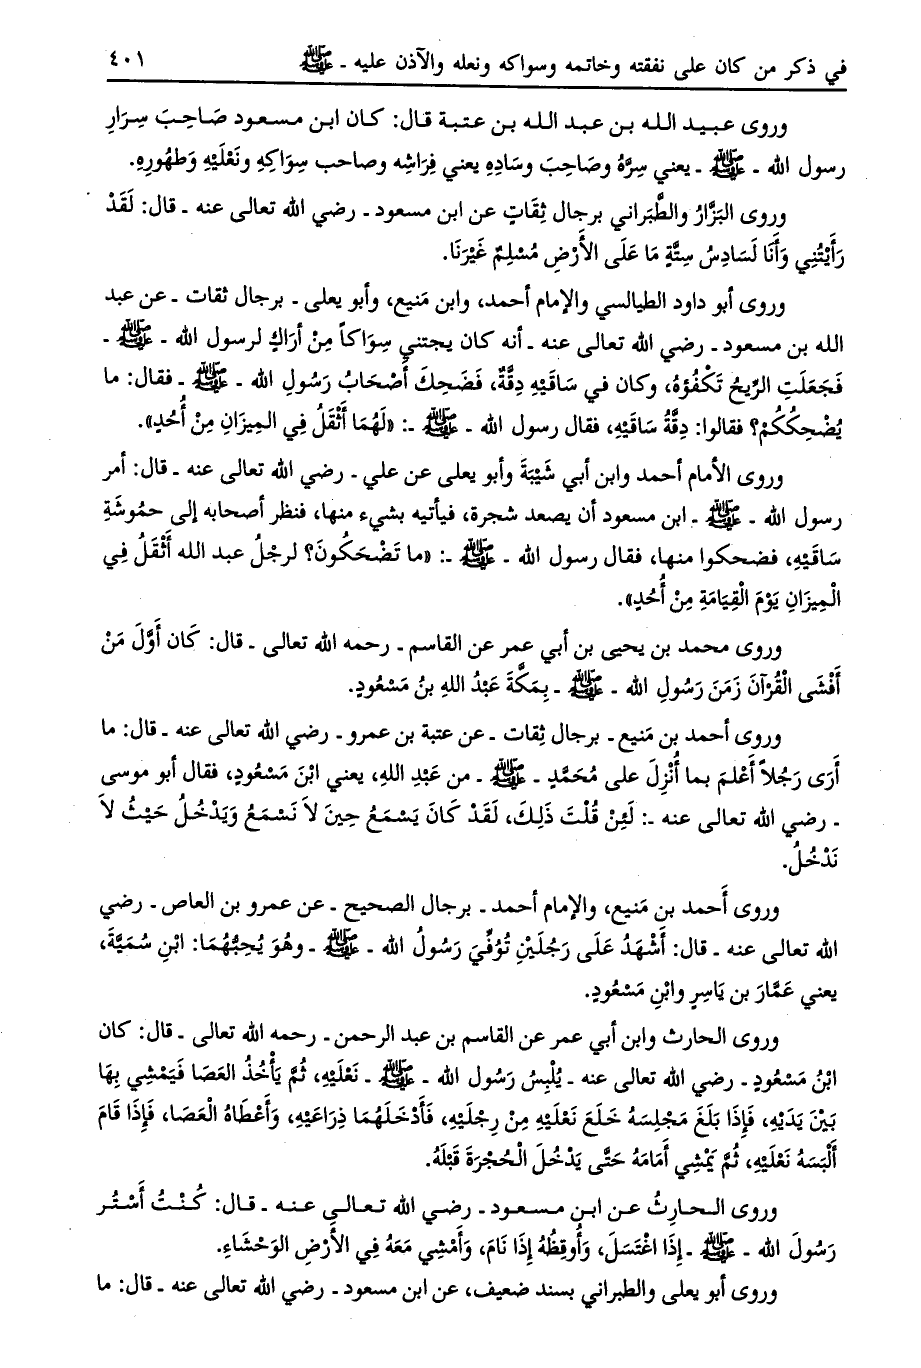 في ذكر من كان على نفقته وخاتمه وسواكه ونعله والآذن عليه ـ ﷺ ٤٠١
وروى عبيد الله بن عبد الله بن عتبة قال: كان ابن مسعود صَاحِبَ سِرَارِ
رسول الله ـ ﷺ ـ يعني سِرَّهُ وصَاحِبَ وِسَادِهِ يعني فِرَاشِه وصاحب سِوَاكِهِ ونَعْلَيْهِ وَطَهُورِهِ.
وروى البَزَّارُ والطَّبَراني برجال ثِقَاتٍ عن ابن مسعود ـ رضي الله تعالى عنه ـ قال: لَقَدْ
رَأَيْتُنِي وَأَنَا لَسَادِسُ سِتَّةٍ مَا عَلَى الأَرْضِ مُسْلِمٌ غَيْرَنَا.
وروى أبو داود الطيالسي والإمام أحمد، وابن مَنِيع، وأبو يعلى ـ برجال ثقات ـ عن عبد
الله بن مسعود ـ رضي الله تعالى عنه ـ أنه كان يجتني سِوَاكاً مِنْ أرَاكٍ لرسول الله ـ ﷺ ـ
فَجَعَلَتِ الرِّيحُ تَكْفُؤهُ، وكان في سَاقَيْهِ دِقَّةٌ، فَضَحِكَ أَصْحَابُ رَسُولِ الله ـ ﷺ ـ فقال: ما
يُضْحِكُكُمْ؟ فقالوا: دِقَّةُ سَاقَيْهِ، فقال رسول الله ـ ﷺ ـ: «لَهُمَا أَثْقَلُ فِي المِيزَانِ مِنْ أُحُدٍ».
وروى الأمام أحمد وابن أبي شَيْبَةَ وأبو يعلى عن علي ـ رضي الله تعالى عنه ـ قال: أمر
رسول الله ـ ﷺ ـ ابن مسعود أن يصعد شجرة، فيأتيه بشيء منها، فنظر أصحابه إلى حمُوشَةِ
سَاقَيْهِ، فضحكوا منها، فقال رسول الله ـ ﷺ ـ: «ما تَضْحَكُونَ؟ لرجْلُ عبد الله أَثْقَلُ فِي
الْمِيزَانِ يَوْمَ الْقِيَامَةِ مِنْ أُحُدٍ».
وروى محمد بن يحيى بن أبي عمر عن القاسم ـ رحمه الله تعالى ـ قال: كَان أَوَّلَ مَنْ
أَفْشَى الْقُرْآنَ زَمَنَ رَسُولِ الله ـ ﷺ ـ بِمَكَّةَ عَبْدُ اللهِ بنُ مَسْعُودٍ.
وروى أحمد بن مَنِيع ـ برجال ثِقات ـ عن عتبة بن عمرو ـ رضي الله تعالى عنه ـ قال: ما
أَرَى رَجُلاً أَعْلمَ بما أُنْزِلَ على مُحَمَّدٍ ـ ﷺ ـ من عَبْدِ اللهِ، يعني ابْنَ مَسْعُودٍ، فقال أبو موسى
ـ رضي الله تعالى عنه ـ: لَئِنْ قُلْتَ ذَلِكَ، لَقَدْ كَانَ يَسْمَعُ حِينَ لاَ نَسْمَعُ وَيَدْخُلُ حَيْثُ لاَ
نَدْخُلُ.
وروى أَحمد بن مَنِيع، والإمام أحمد ـ برجال الصحيح ـ عن عمرو بن العاص ـ رضي
الله تعالى عنه ـ قال: أَشْهَدُ عَلَى رَجُلَيْنِ تُوُفِّيَ رَسُولُ الله ـ ﷺ ـ وهُوَ يُحِبُّهُمَا: ابْنِ سُمَيَّةَ،
يعني عَمَّارَ بن يَاسِرٍ وابْنِ مَسْعُودٍ.
وروى الحارث وابن أبي عمر عن القاسم بن عبد الرحمن ـ رحمه الله تعالى ـ قال: كان
ابْنُ مَسْعُودٍ ـ رضي الله تعالى عنه ـ يُلْبِسُ رَسُولَ الله ـ ﷺ ـ نَعْلَيْهِ، ثُمَّ يَأْخُذُ العَصَا فَيَمْشِي بِهَا
بَيْنَ يَدَيْهِ، فَإِذَا بَلَغَ مَجْلِسَهُ خَلَعَ نَعْلَيْهِ مِنْ رِجْلَيْهِ، فَأَدْخَلَهُمَا ذِرَاعَيْهِ، وَأَعْطَاهُ الْعَصَا، فَإِذَا قَامَ
أَلْبَسَهُ نَعْلَيْهِ، ثُمَّ يَمْشِي أَمَامَهُ حَتَّى يَدْخُلَ الْحُجْرَةَ قَبْلَهُ.
وروى الحارِثُ عن ابن مسعود ـ رضي الله تعالى عنه ـ قال: كُنْتُ أَسْتُر
رَسُولَ الله ـ ﷺ ـ إِذَا اغْتَسَلَ، وَأُوقِظُهُ إِذَا نَامَ، وَأَمْشِي مَعَهُ فِي الأَرْضِ الوَحْشَاءِ.
وروى أبو يعلى والطبراني بسند ضعيف، عن ابن مسعود ـ رضي الله تعالى عنه ـ قال: ما